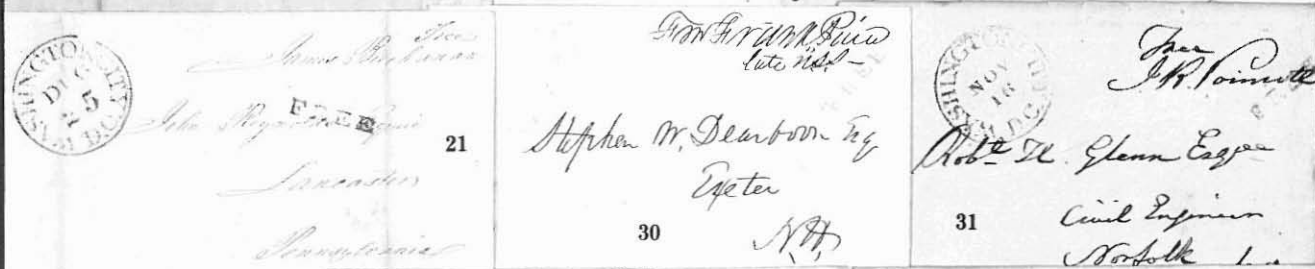 WASHINGTON CITY D.C.
DEC 5
Free
James Buchanan
FREE
John Reynolds Esquire
Lancaster
Pennsylvania
21
late U.S.S
Stephen W. Dearborn Esq
Exeter
N.H.
30
WASHINGTON CITY D.C.
NOV 16
Free
J.R. Poinsett
Robt H. Glenn Esqre
Civil Engineer
Norfolk
31